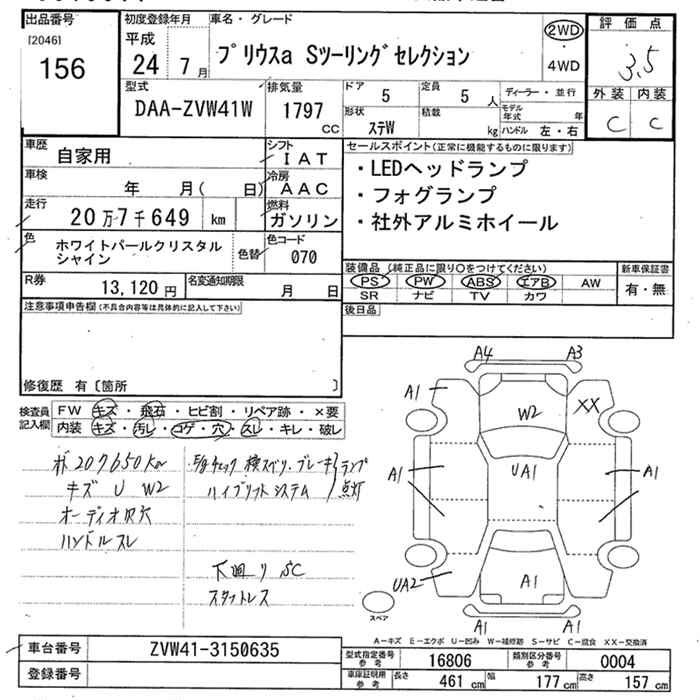 出品番号 初度登録年月 車名・グレード 評価点
[2046]
156
平成
24 年 7 月
プリウスa Sツーリングセレクション
2WD
・
4WD
3.5
外装 内装
C C
型式
DAA-ZVW41W
排気量
1797
cc
ドア 5
定員 5 人
形状
ステW
積載
kg
ディーラー・並行
モデル年式 年
ハンドル 左・右
車歴
自家用
シフト
IAT
車検
年 月( 日)
冷房
AAC
走行
20万7千649 km
燃料
ガソリン
色
ホワイトパールクリスタル
シャイン
色替
色コード
070
R券
13,120円
名変通知期限
月 日
セールスポイント(正常に機能するものに限ります)
・LEDヘッドランプ
・フォグランプ
・社外アルミホイール
装備品 (純正品に限り○をつけてください) 新車保証書
PS PW ABS エアB AW 有・無
SR ナビ TV カワ
後日品
注意事項申告欄(不具合内容等は具体的に記入して下さい)
修復歴 有〔箇所 〕
検査員
記入欄
FW キズ・飛石・ヒビ割・リペア跡・×要
内装 キズ・汚レ・コゲ・穴・スレ・キレ・破レ
207650km
キズ U W2
オーディオ穴
ハンドルスレ
チェック 横スベリ・ブレーキ ランプ
ハイブリットシステム 点灯
下廻り SC
スタットレス
A4 A3
A1 XX
W2
A1 UA1 A1
UA2 A1
A1 A1
スペア
A-キズ E-エクボ U-凹み W-補修跡 S-サビ C-腐食 XX-交換済
車台番号 ZVW41-3150635
登録番号
型式指定番号
参考
16806
類別区分番号
参考
0004
車庫証明用
参考
長さ 461 cm 幅 177 cm 高さ 157 cm